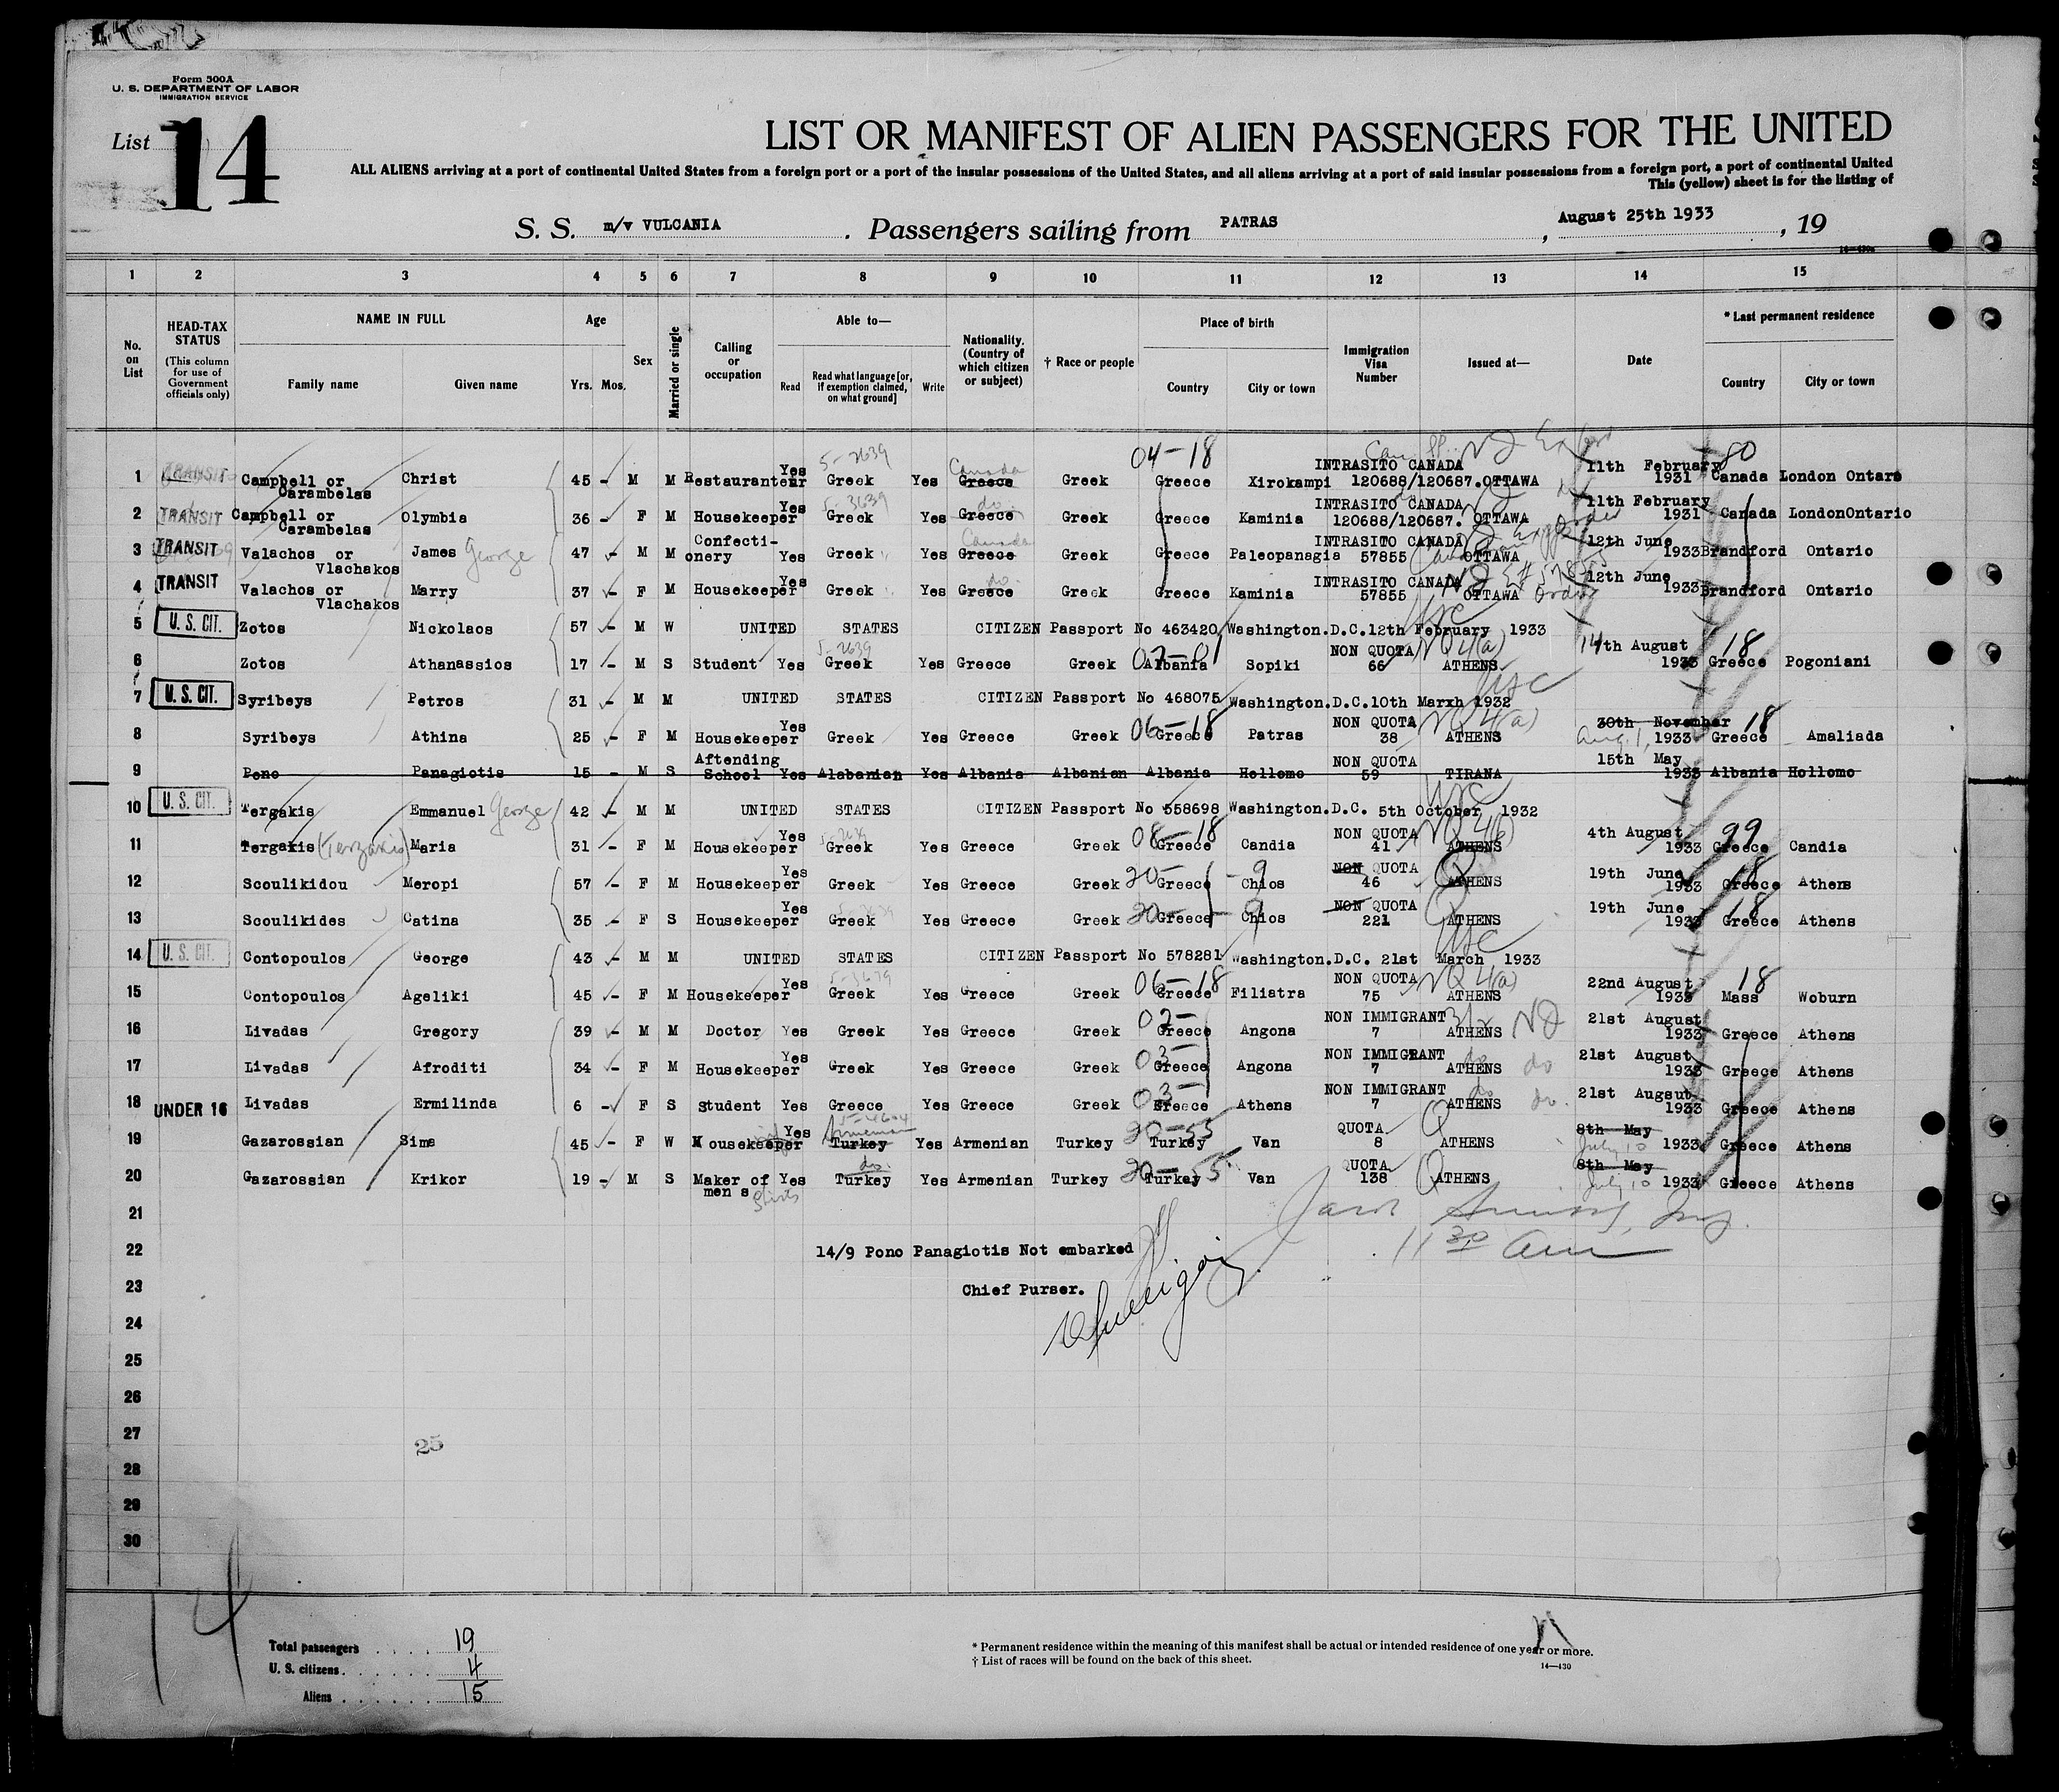 Form 500A
U. S. DEPARTMENT OF LABOR
IMMIGRATION SERVICE
List 14
LIST OR MANIFEST OF ALIEN PASSENGERS FOR THE UNITED
ALL ALIENS arriving at a port of continental United States from a foreign port or a port of the insular possessions of the United States, and all aliens arriving at a port of said insular possessions from a foreign port, a port of continental United
This (yellow) sheet is for the listing of
S. S. m/v VULCANIA. Passengers sailing from PATRAS, August 25th 1933, 19
1 2 3 4 5 6 7 8 9 10 11 12 13 14 15
No. on List
HEAD-TAX STATUS (This column for use of Government officials only)
NAME IN FULL Family name Given name
Age Yrs. Mos.
Sex
Married or single
Calling or occupation
Able to— Read Read what language [or, if exemption claimed, on what ground] Write
Nationality. (Country of which citizen or subject)
† Race or people
Place of birth Country City or town
Immigration Visa Number
Issued at—
Date
* Last permanent residence Country City or town
1 TRANSIT Campbell or Carambelas Christ 45 - M M Restauranteur Yes Greek 5-3639 Yes Greece Canada Greek 04-18 Greece Xirokampi INTRASITO CANADA 120688/120687. OTTAWA 11th February 1931 80 Canada London Ontaro
2 TRANSIT Campbell or Carambelas Olymbia 36 - F M Housekeeper Yes Greek 5-3639 Yes Greece do Greek Greece Kaminia INTRASITO CANADA 120688/120687. OTTAWA 11th February 1931 Canada LondonOntario
3 TRANSIT Valachos or Vlachakos James George 47 - M M Confecti-onery Yes Greek Yes Greece Canada Greek Greece Paleopanagia INTRASITO CANADA 57855 OTTAWA 12th June 1933 Brandford Ontario
4 TRANSIT Valachos or Vlachakos Marry 37 - F M Housekeeper Yes Greek Yes Greece do. Greek Greece Kaminia INTRASITO CANADA 57855 OTTAWA 12th June 1933 Brandford Ontario
5 U. S. CIT. Zotos Nickolaos 57 - M W UNITED STATES CITIZEN Passport No 463420 Washington.D.C.12th February 1933 USC
6 Zotos Athanassios 17 - M S Student Yes Greek 5-3639 Yes Greece Greek Albania Sopiki NON QUOTA 66 NQ 4(a) ATHENS 14th August 1933 18 Greece Pogoniani
7 U. S. CIT. Syribeys Petros 31 - M M UNITED STATES CITIZEN Passport No 468075 Washington.D.C.10th Marxh 1932 USC
8 Syribeys Athina 25 - F M Housekeeper Yes Greek Yes Greece Greek 06-18 Greece Patras NON QUOTA 38 NQ 4(a) ATHENS 30th November Aug. 1, 1933 18 Greece Amaliada
9 Pono Panagiotis 15 - M S Aftending School Yes Alabanian Yes Albania Albanian Albania Hollomo NON QUOTA 59 TIRANA 15th May 1933 Albania Hollomo
10 U. S. CIT. Tergakis Emmanuel George 42 - M M UNITED STATES CITIZEN Passport No 558698 Washington.D.C. 5th October 1932 USC
11 Tergakis (Terzakis) Maria 31 - F M Housekeeper Yes Greek Yes Greece Greek 08-18 Greece Candia NON QUOTA 41 ATHENS 4th August 1933 99 Greece Candia
12 Scoulikidou Meropi 57 - F M Housekeeper Yes Greek Yes Greece Greek 20- Greece 9 Chios NON QUOTA 46 Q ATHENS 19th June 1933 18 Greece Athens
13 Scoulikides Catina 35 - F S Housekeeper Yes Greek Yes Greece Greek 20- Greece 9 Chios NON QUOTA 221 Q ATHENS 19th June 1933 18 Greece Athens
14 U. S. CIT. Contopoulos George 43 - M M UNITED STATES CITIZEN Passport No 578281 Washington.D.C. 21st March 1933 USC
15 Contopoulos Ageliki 45 - F M Housekeeper Yes Greek 5-3639 Yes Greece Greek 06-18 Greece Filiatra NON QUOTA 75 NQ 4(a) ATHENS 22nd August 1933 18 Mass Woburn
16 Livadas Gregory 39 - M M Doctor Yes Greek Yes Greece Greek Greece Angona NON IMMIGRANT 7 ATHENS 21st August 1933 Greece Athens
17 Livadas Afroditi 34 - F M Housekeeper Yes Greek Yes Greece Greek 03- Greece Angona NON IMMIGRANT 7 ATHENS do do 21st August 1933 Greece Athens
18 UNDER 16 Livadas Ermilinda 6 - F S Student Yes Greece Yes Greece Greek 03- Greece Athens NON IMMIGRANT 7 ATHENS do do. 21st Augsut 1933 Greece Athens
19 Gazarossian Sima 45 - F W Housekeeper Yes Turkey Armenian Yes Armenian Turkey 20-55 Turkey Van QUOTA 8 Q ATHENS 8th May July 10 1933 Greece Athens
20 Gazarossian Krikor 19 - M S Maker of men s Yes Turkey do. Yes Armenian Turkey 20-55 Turkey Van QUOTA 138 Q ATHENS 8th May July 10 1933 Greece Athens
21
22 14/9 Pono Panagiotis Not embarked 11 30 am
23 Chief Purser.
24
25
26
27 25
28
29
30
14
Total passengers 19
U. S. citizens 4
Aliens 15
* Permanent residence within the meaning of this manifest shall be actual or intended residence of one year or more.
† List of races will be found on the back of this sheet.
14—430